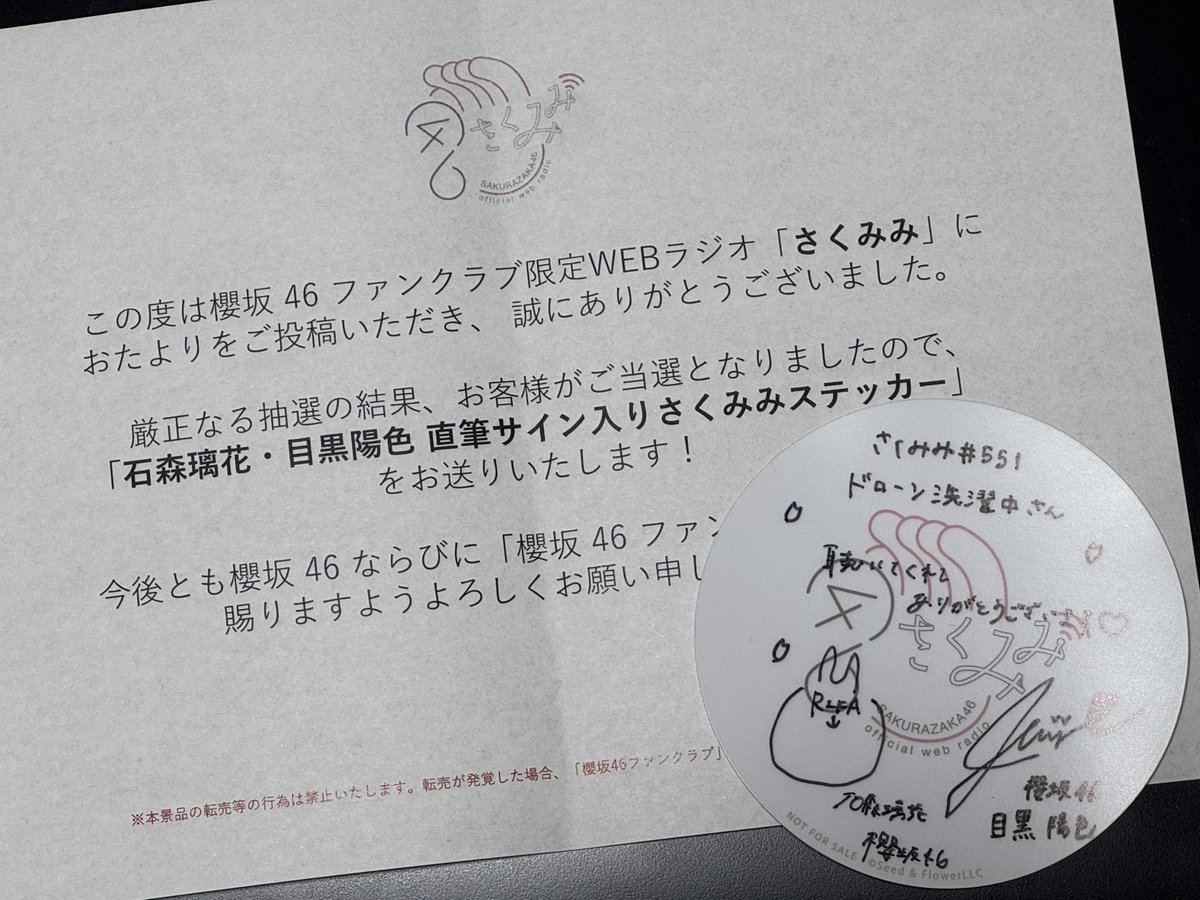 さくみみ
SAKURAZAKA46
official web radio
この度は櫻坂 46 ファンクラブ限定WEBラジオ「さくみみ」に
おたよりをご投稿いただき、 誠にありがとうございました。
厳正なる抽選の結果、お客様がご当選となりましたので、
「石森璃花・目黒陽色 直筆サイン入りさくみみステッカー」
をお送りいたします！
今後とも櫻坂 46 ならびに「櫻坂 46 ファン
賜りますようよろしくお願い申し
※本景品の転売等の行為は禁止いたします。転売が発覚した場合、「櫻坂46ファンクラブ」
さくみみ#551
ドローン洗濯中さん
聴いてくれて
ありがとうござい
さくみみ
SAKURAZAKA46
official web radio
RIKA
石森璃花
櫻坂46
櫻坂46
目黒 陽色
NOT FOR SALE ©Seed & FlowerLLC